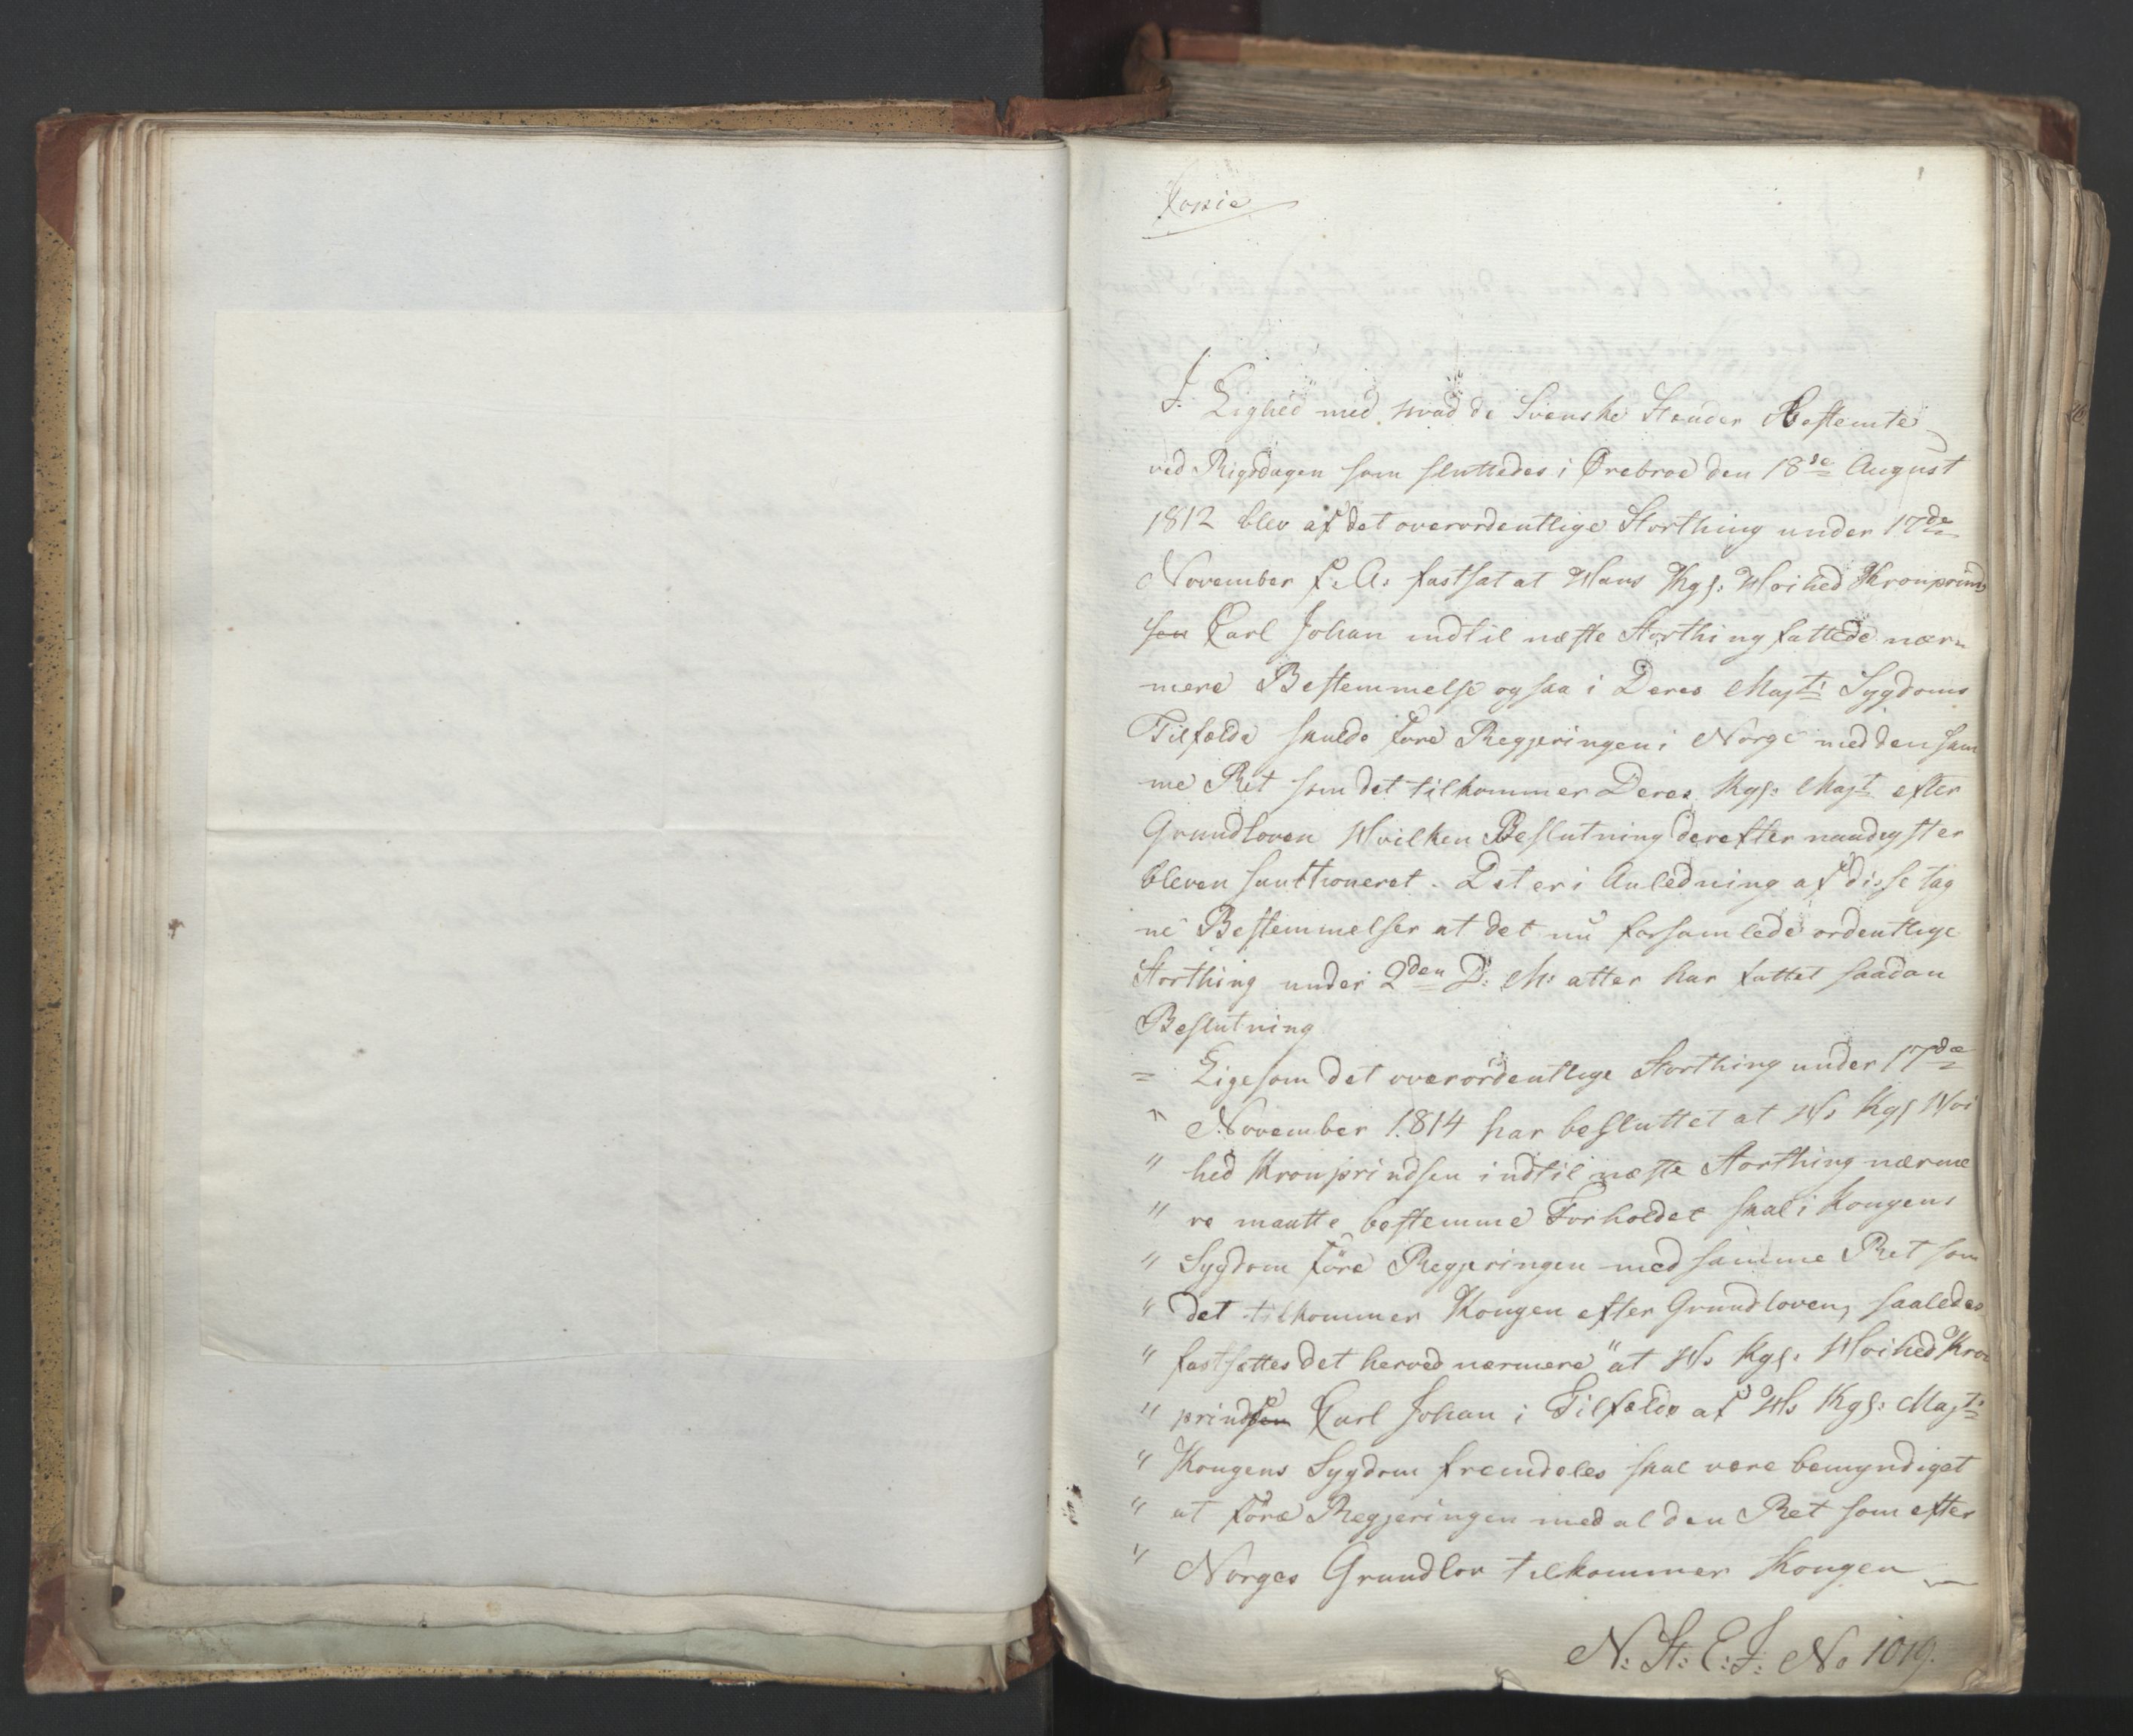 Kopie
1
I Lighed med hvad de Svenske Stænder Bestemte
ved Rigsdagen som sluttedes i Ørebroe den 18de August
1812 blev af det overordentlige Storthing under 17de
November f: A: fastsat at Hans Kgs: Høihed Kronprind
sen Carl Johan indtil næste Storthing fattede nær=
mere Bestemmelse ogsaa i Deres Majts: Sygdoms
Tilfælde skulde føre Regjeringen i Norge med den sam
me Ret som det tilkommer Deres Kgs: Majt efter
Grundloven Hvilken Beslutning derefter naadigst er
bleven sanctioneret. Det er i Anledning af disse tag
ne Bestemmelser at det nu forsamlede ordentlige
Storthing under 2den D: M: atter har fattet saadan
Beslutning
= Ligesom det overordentlige Storthing under 17de
" November 1814 har besluttet at Hs Kgs Høi
" hed Kronprindsen indtil næste Storthing nærme
" re maatte bestemme Forholdet skal i Kongens
" Sygdom före Regjeringen med samme Ret som
" det tilkommer Kongen efter Grundloven, saaledes
" fastsættes det herved nærmere "at Hs Kgs: Høihed Kron
" prindsen Carl Johan i Tilfælde af Hs Kgs: Majts:
" Kongens Sygdom fremdeles skal være bemyndiget
" at føre Regjeringen med al den Ret som efter
" Norges Grundlov tilkommer Kongen
N: St: E: J: No 1019.